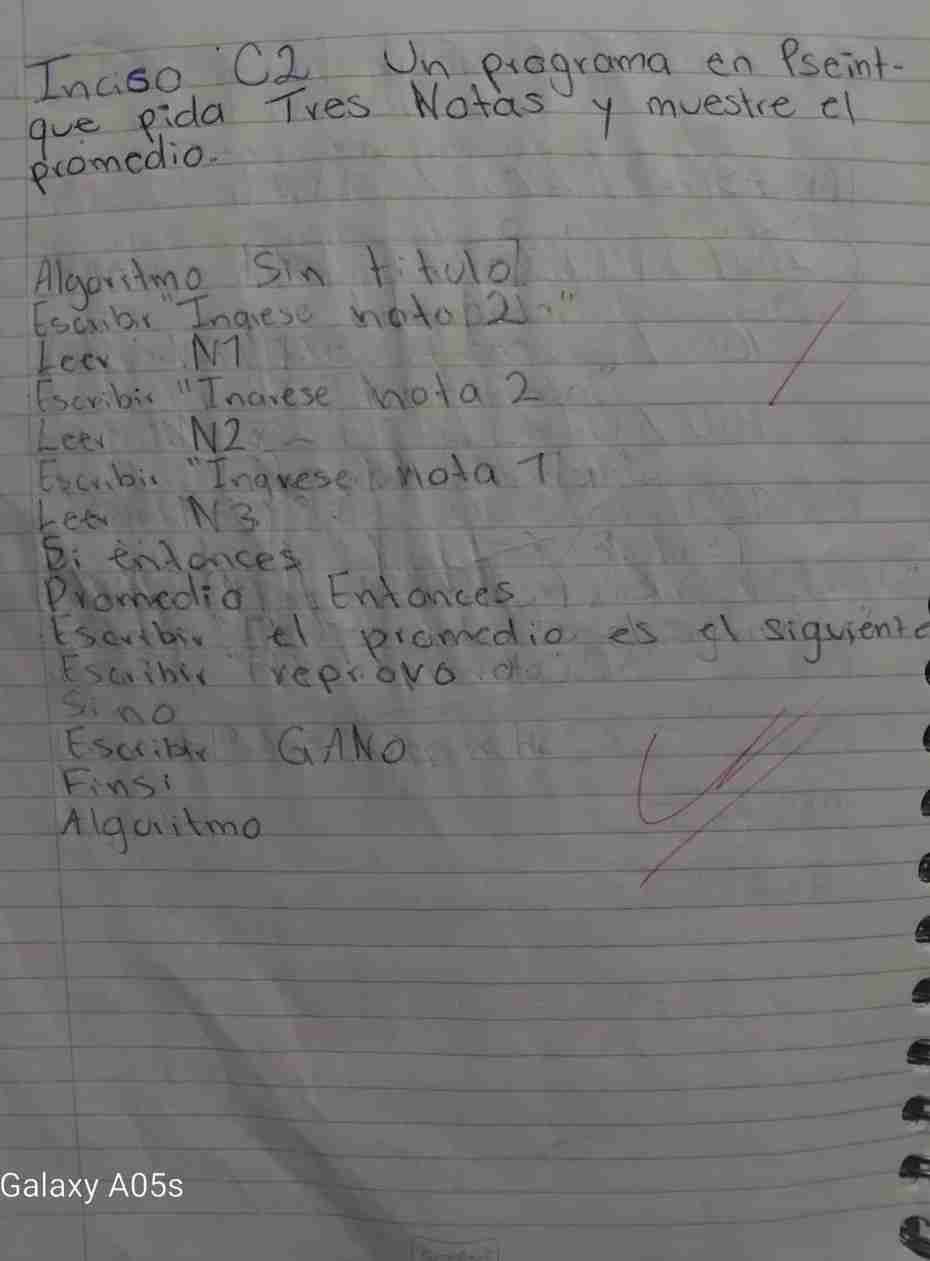 Inciso C2 Un programa en Pseint-
que pida Tres Notas y muestre el
promedio.
Algoritmo Sin titulo
Escribir "Ingrese nota 2."
Leer N1
Escribir "Ingrese nota 2 "
Leer N2
Escribir "Ingrese nota 1
Leer N3
Si entonces
Promedio Entonces
Escribir el promedio es el siguiente
Escribir reprovo
Si no
Escribir GANO
Finsi
Algoritmo
Galaxy A05s